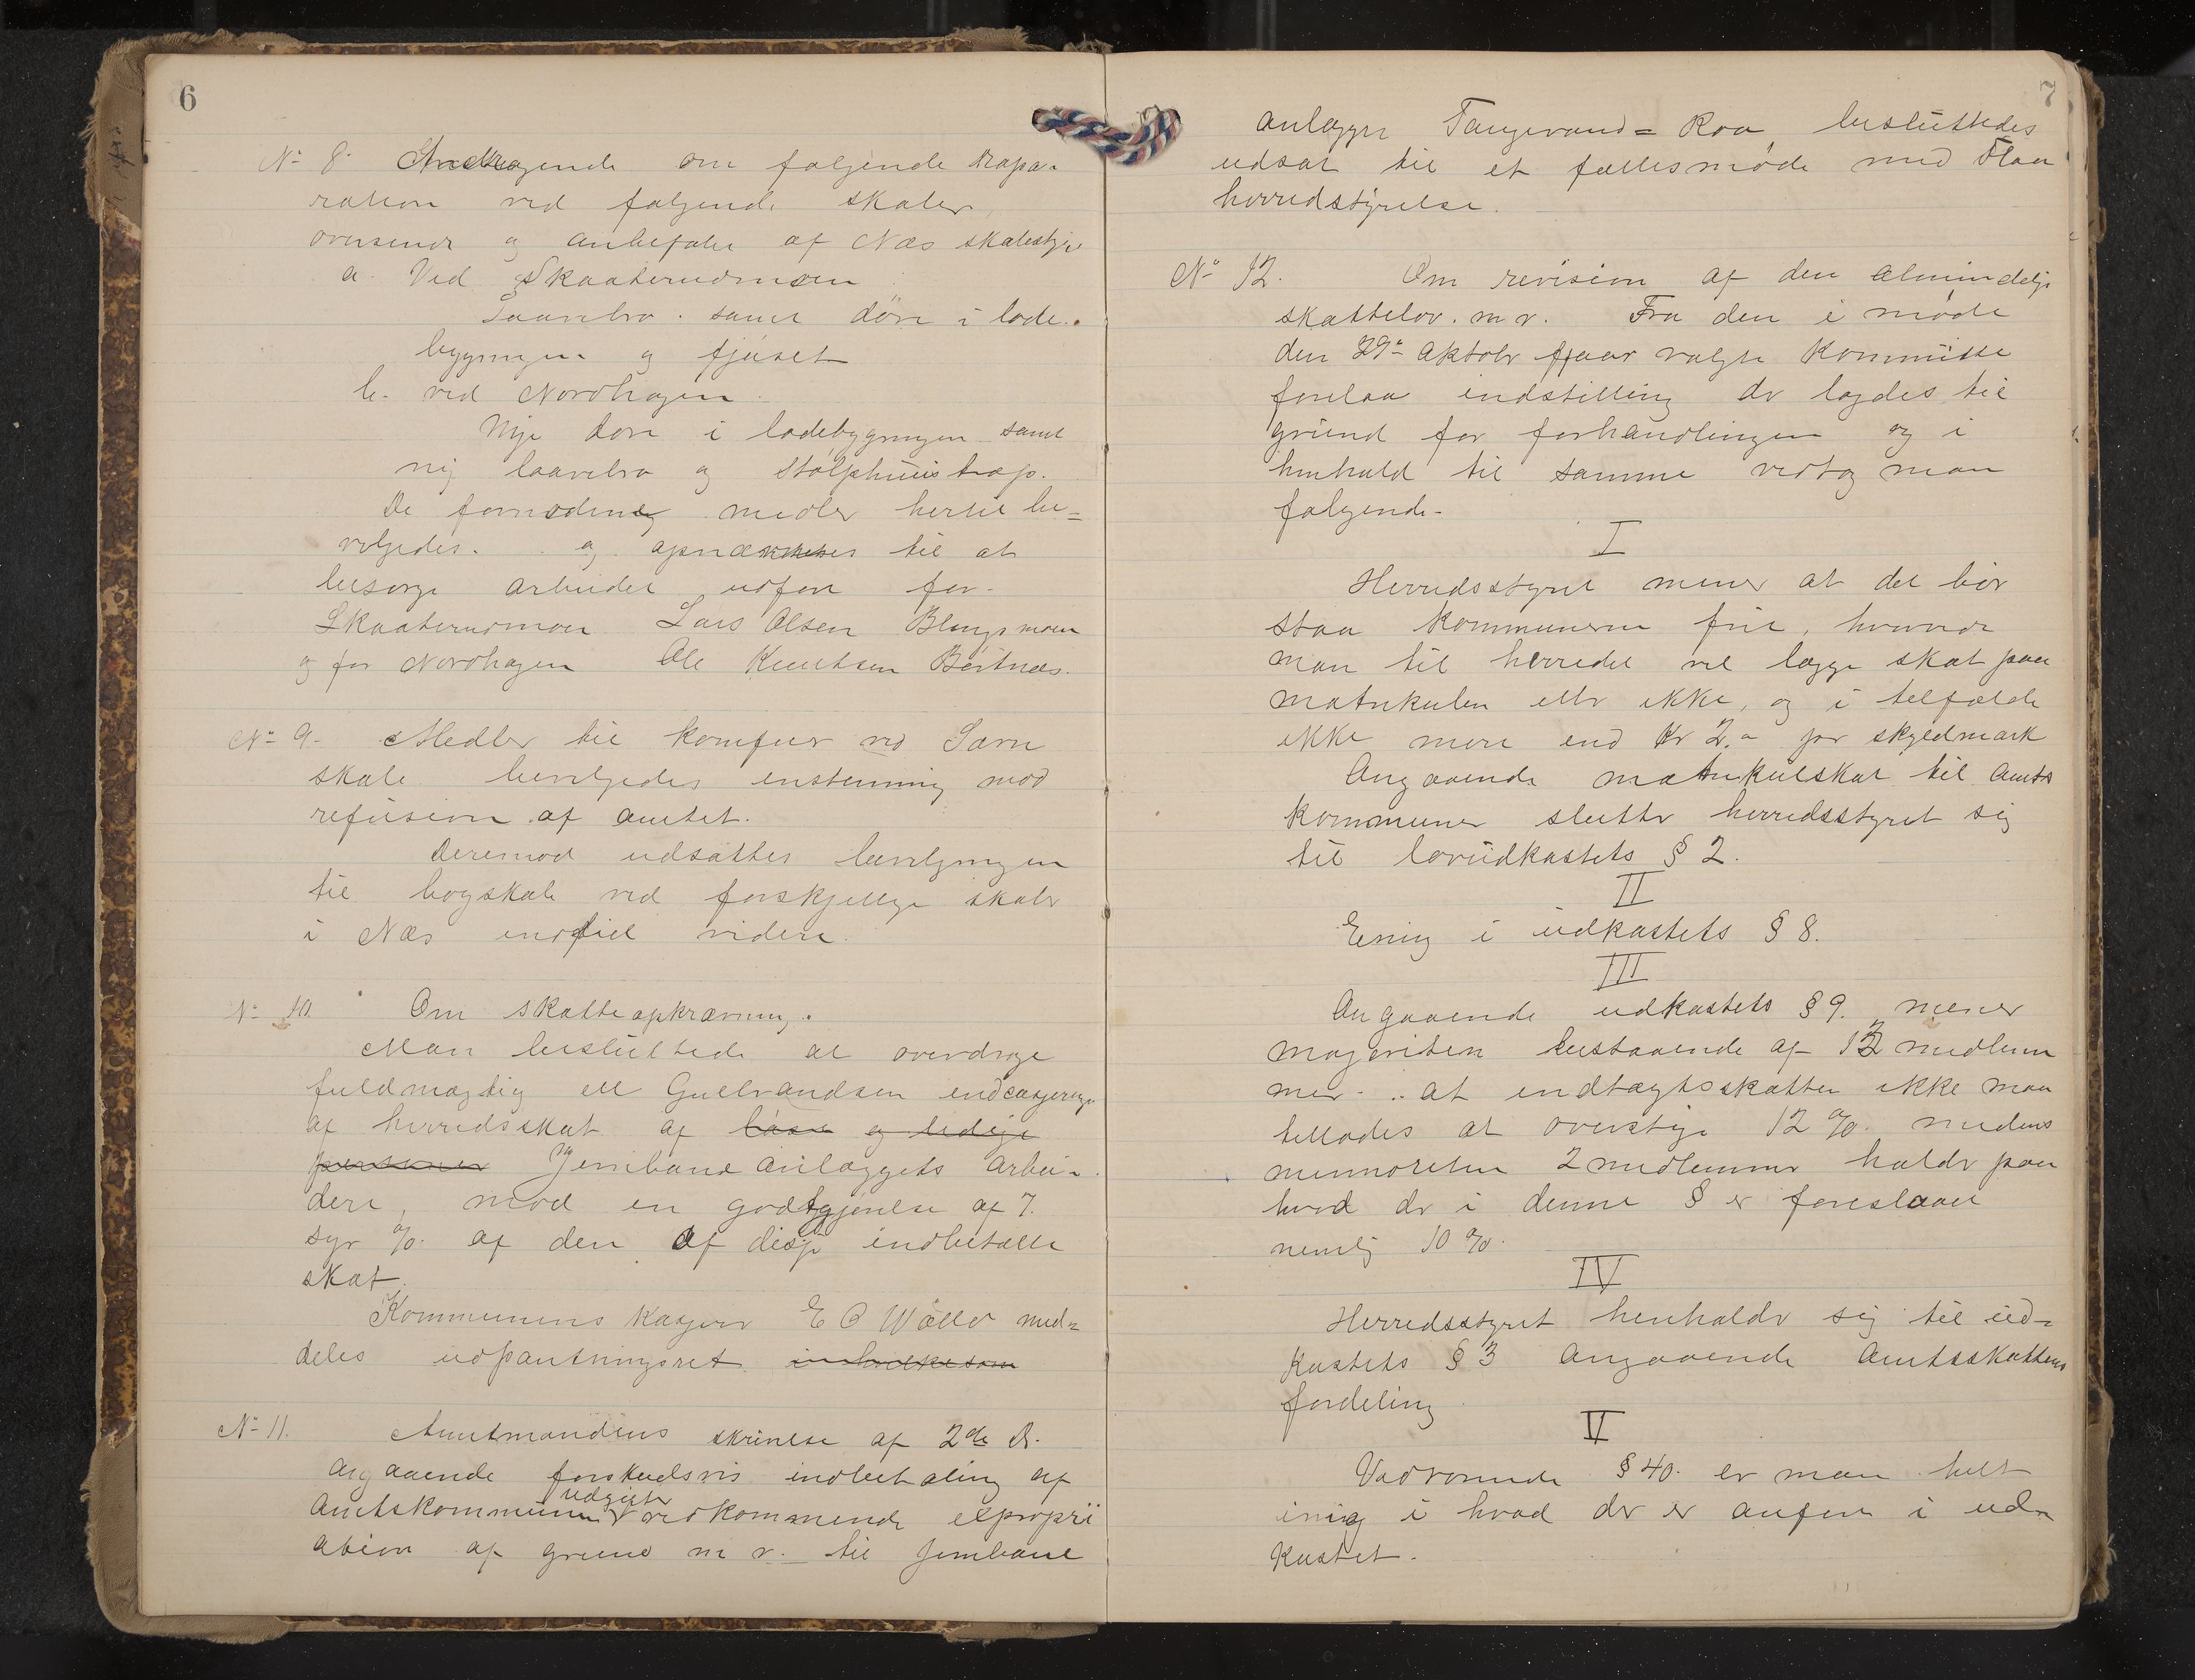 6
No 8. Andragende om følgende Repa-
ration ved følgende skoler,
oversendt og anbefalet af Næs skolestyre
a. Ved Skaaterudmoen
Laavebro. samt døre i lade..
bygningen og fjøset
b. ved Nordhagen.
Nye døre i ladebygningen samt
ny laavebro og Stolphuustrap.
De fornødne midler hertil be=
vilgedes. og opnævntes til at
besørge arbeidet udført for.
Skaaterudmoen Lars Olsen Blengsmoen
og for Nordhagen Ole Knutsen Beitnæs.
No 9. Medler til komfur ved Garn
skole bevilgedes enstemmig mod
refusion af amtet.
Derimod udsattes bevilgningen
til bogskab ved forskjellige skoler
i Næs indtil videre.
No 10. Om skatteopkrævning.
Man besluttede at overdrage
fuldmægtig M Gulbrandsen indcasseringe
af herredsskat af løse og ledige
personer Jernbaneanlæggets arbei-
dere, mod en godtgjørelse af 7.
syv %. af den af disse indbetalte
skat.
Kommunens kasserer E O Wøllo med=
deles udpantningsret. i hvilkesom
No 11. Amtmandens skrivelse af 2de Ds.
Angaaende forskudsvis indbetaling af
udgifter
Amtskommunen vedkommende expropri
ation af grund m v. til Jernbane
7
anlægget Tangevand=Roa besluttedes
udsat til et fællesmøde med Flaa
herredstyrelse.
No 12. Om revision af den almindelige
skattelov. m v. Fra den i møde
den 29de Oktobr f aar valgte Kommitte
forelaa indstilling der lagdes til
grund for forhandlingen og i
henhold til samme vedtog man
følgende-
I
Herredsstyret mener at det bør
staa kommunerne frit, hvorvidt
man til herredet vil lægge skat paa
matrikulen eller ikke, og i tilfælde
ikke mere end Kr 2.- pr skyldmark
Angaaende matrikulskat til Amts
kommuner slutter herredsstyret sig
til lovudkastets § 2.
II
Enig i udkastets § 8.
III
Angaaende udkastets § 9. mener
majoriteten bestaaende af 13 medlem
mer. .. at indtægtsskatten ikke maa
tillades at overstige 12 %. medens
minnoriteten 2 medlemmer holder paa
hvad der i denne § er foreslaaet
nemlig 10 %.
IV
Herredsstyret henholder sig til ud=
kastets § 3 angaaende Amtsskattens
fordeling
V
Vedrørende § 40. er man helt
enig i hvad der er anført i ud=
kastet.